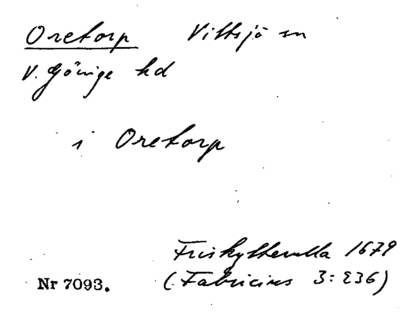 Oretorp Vittsjö sn
V. Göinge hd
i Oretorp
Friskytterulla 1679
Nr 7093. (Fabricius 3: 236)